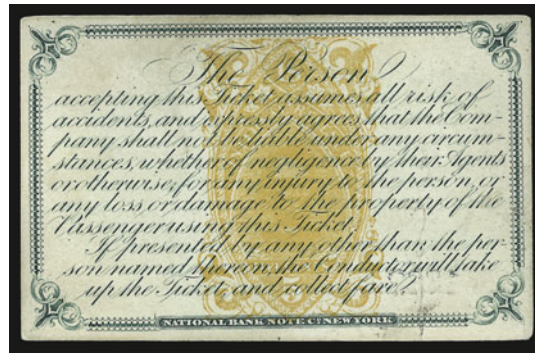 The Person
accepting this Ticket assumes all risk of
accidents, and expressly agrees that the Com-
pany shall not be liable under any circum-
stances, whether of negligence by their Agents
or otherwise, for any injury to the person, or
any loss or damage to the property of the
Passenger using this Ticket.
If presented by any other than the per-
son named thereon, the Conductor will take
up the Ticket and collect fare.
NATIONAL BANK NOTE Cº NEW YORK